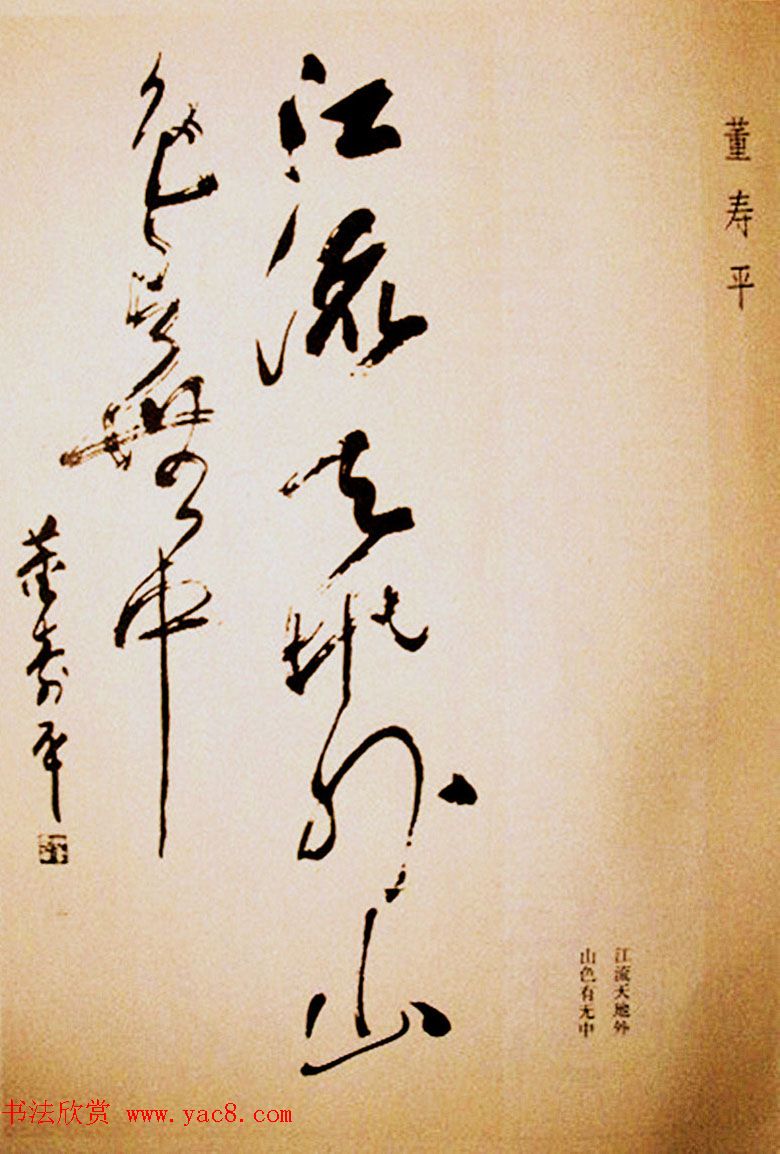 董寿平
江流天地外山
色有無中
董壽平
江流天地外
山色有无中
书法欣赏 www.yac8.com